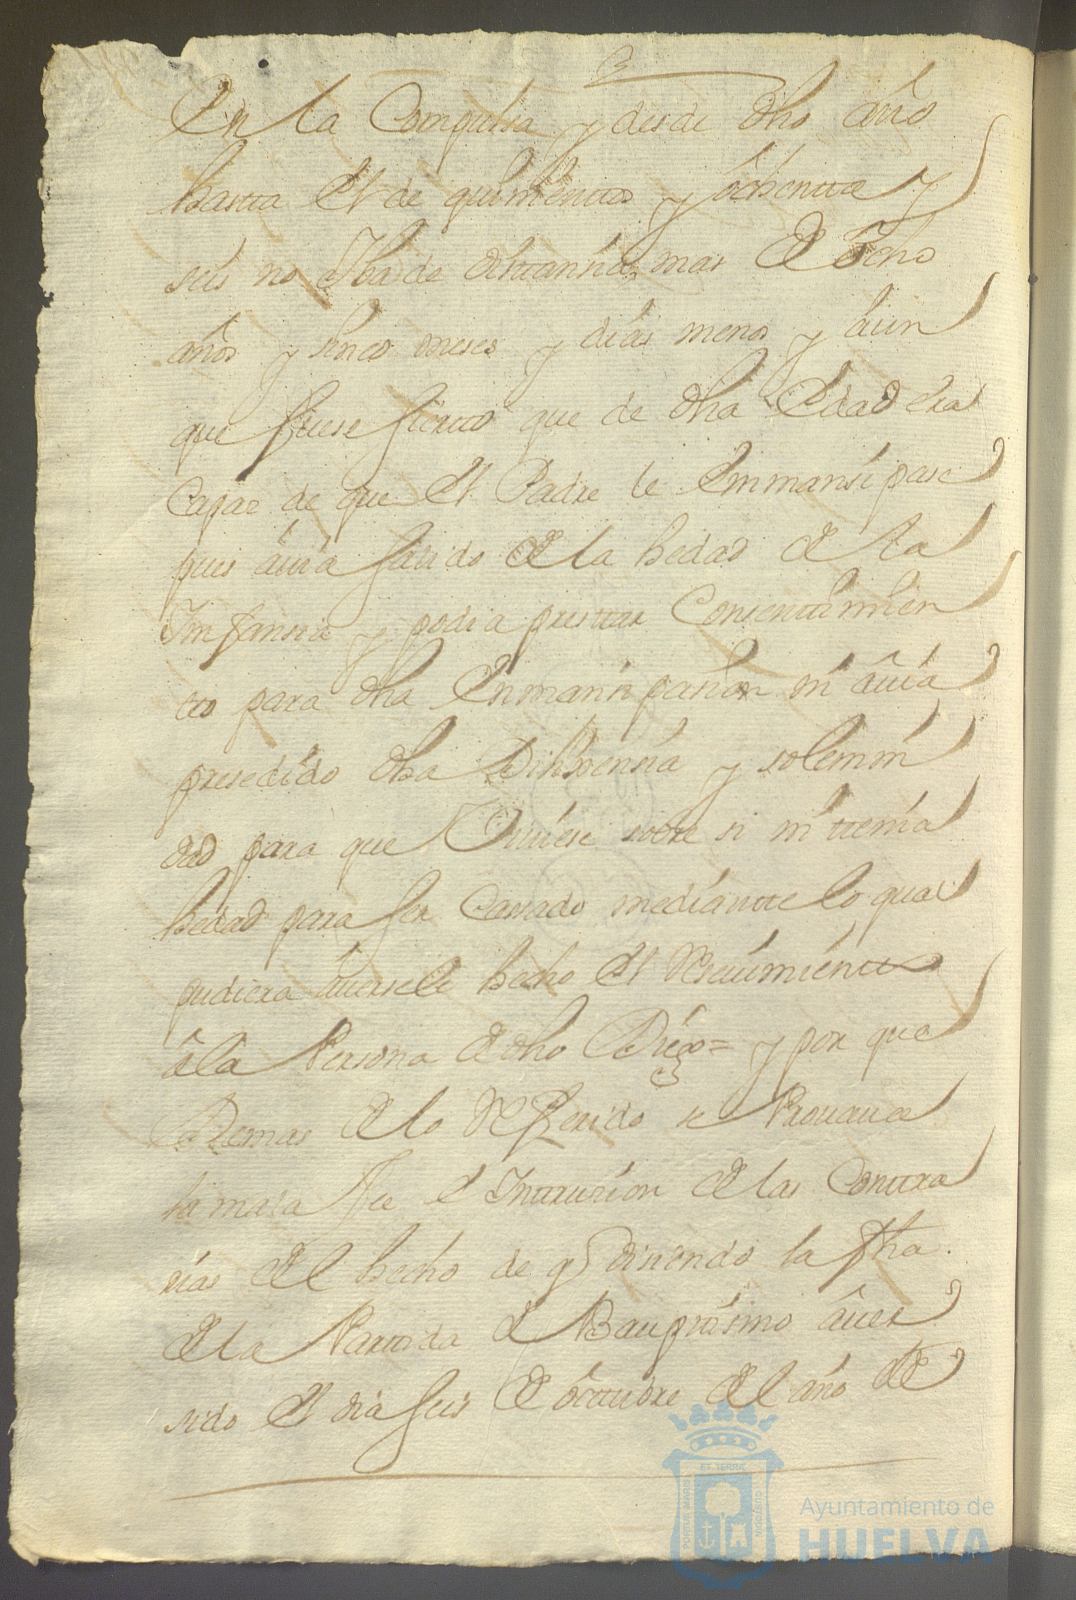 En la Compulsa y desde dho año
hasta El de quinientos y ôchentta y
seis no Iba de distanzia mas de Ocho
años y sinco meses y dias menos y âun
que fuese sierto que de dha Edad era
Capaz de que El Padre le Emmansipase
pues âuia salido de la hedad de la
Imfansia y podia presttar Consenttimien
tto para dha Enmansipasion ni âuia
presedido dha Dilixensia y solemni
dad para que Viuiese sobre si ni ttenia
hedad para ser Casado mediantte lo qual
pudiera âuersele hecho El Resiuimientto
â la Persona de dho Diego = y por que
Demas de lo Referido se Prouaua
la mala fee e Inttrusion de las Conttra
rias del hecho de q disiendo la fha
de la Partida de Bauptismo âuer
sido El dia seis de ôcttubre del año de
ET TERRAE
Ayuntamiento de
HUELVA